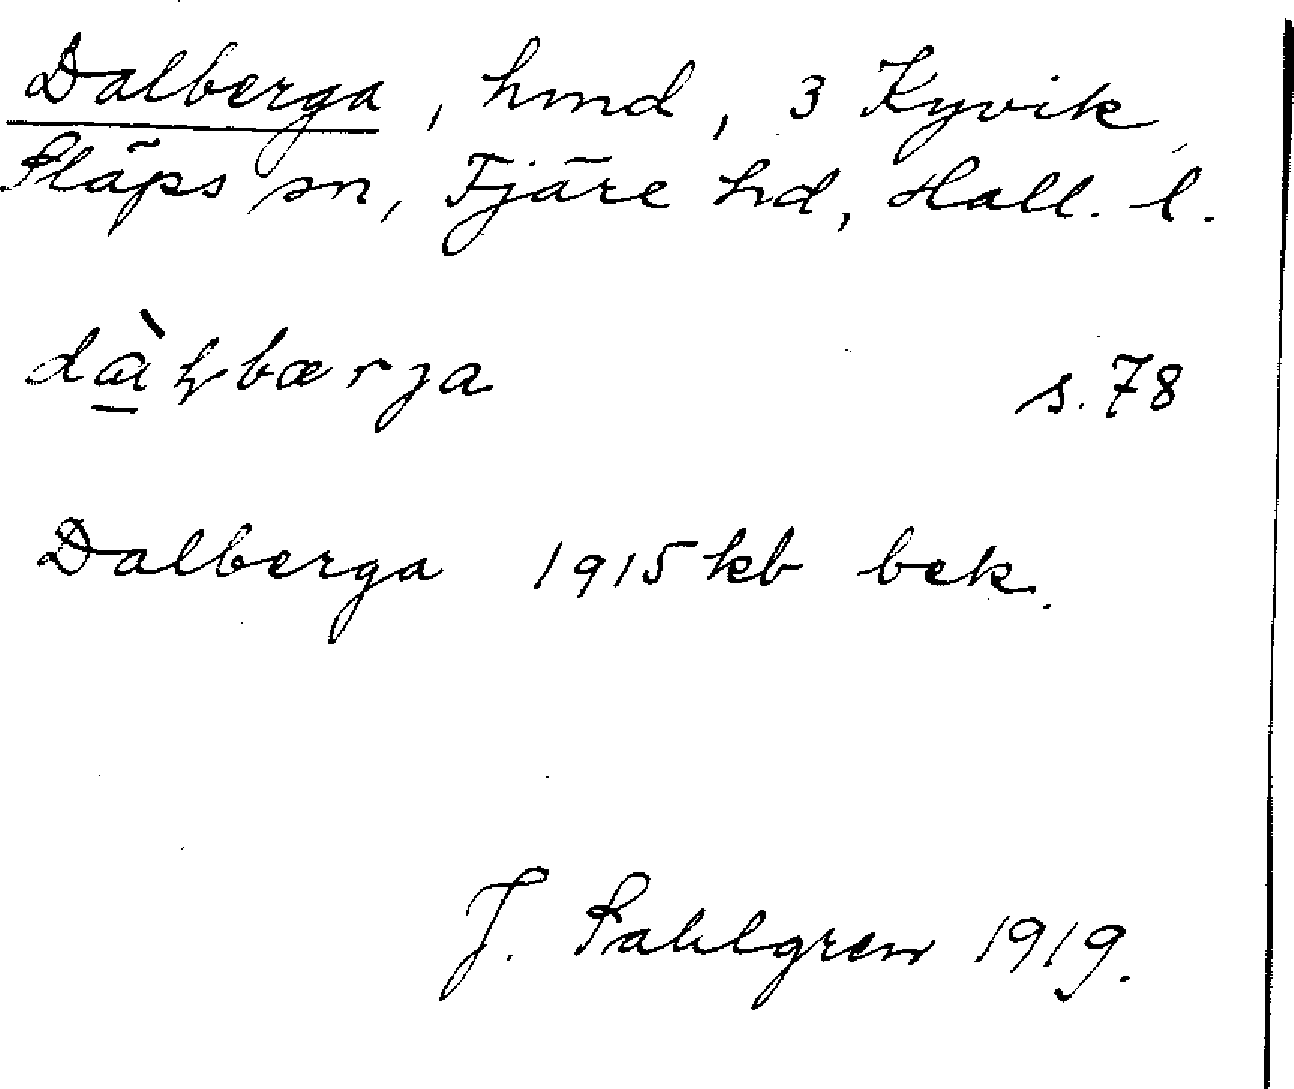 Dalberga, hmd, 3 Kyvik,
Släps sn, Fjäre hd, Hall. l.
dàɽbærja s.78
Dalberga 1915 kb bek.
J. Sahlgren 1919.